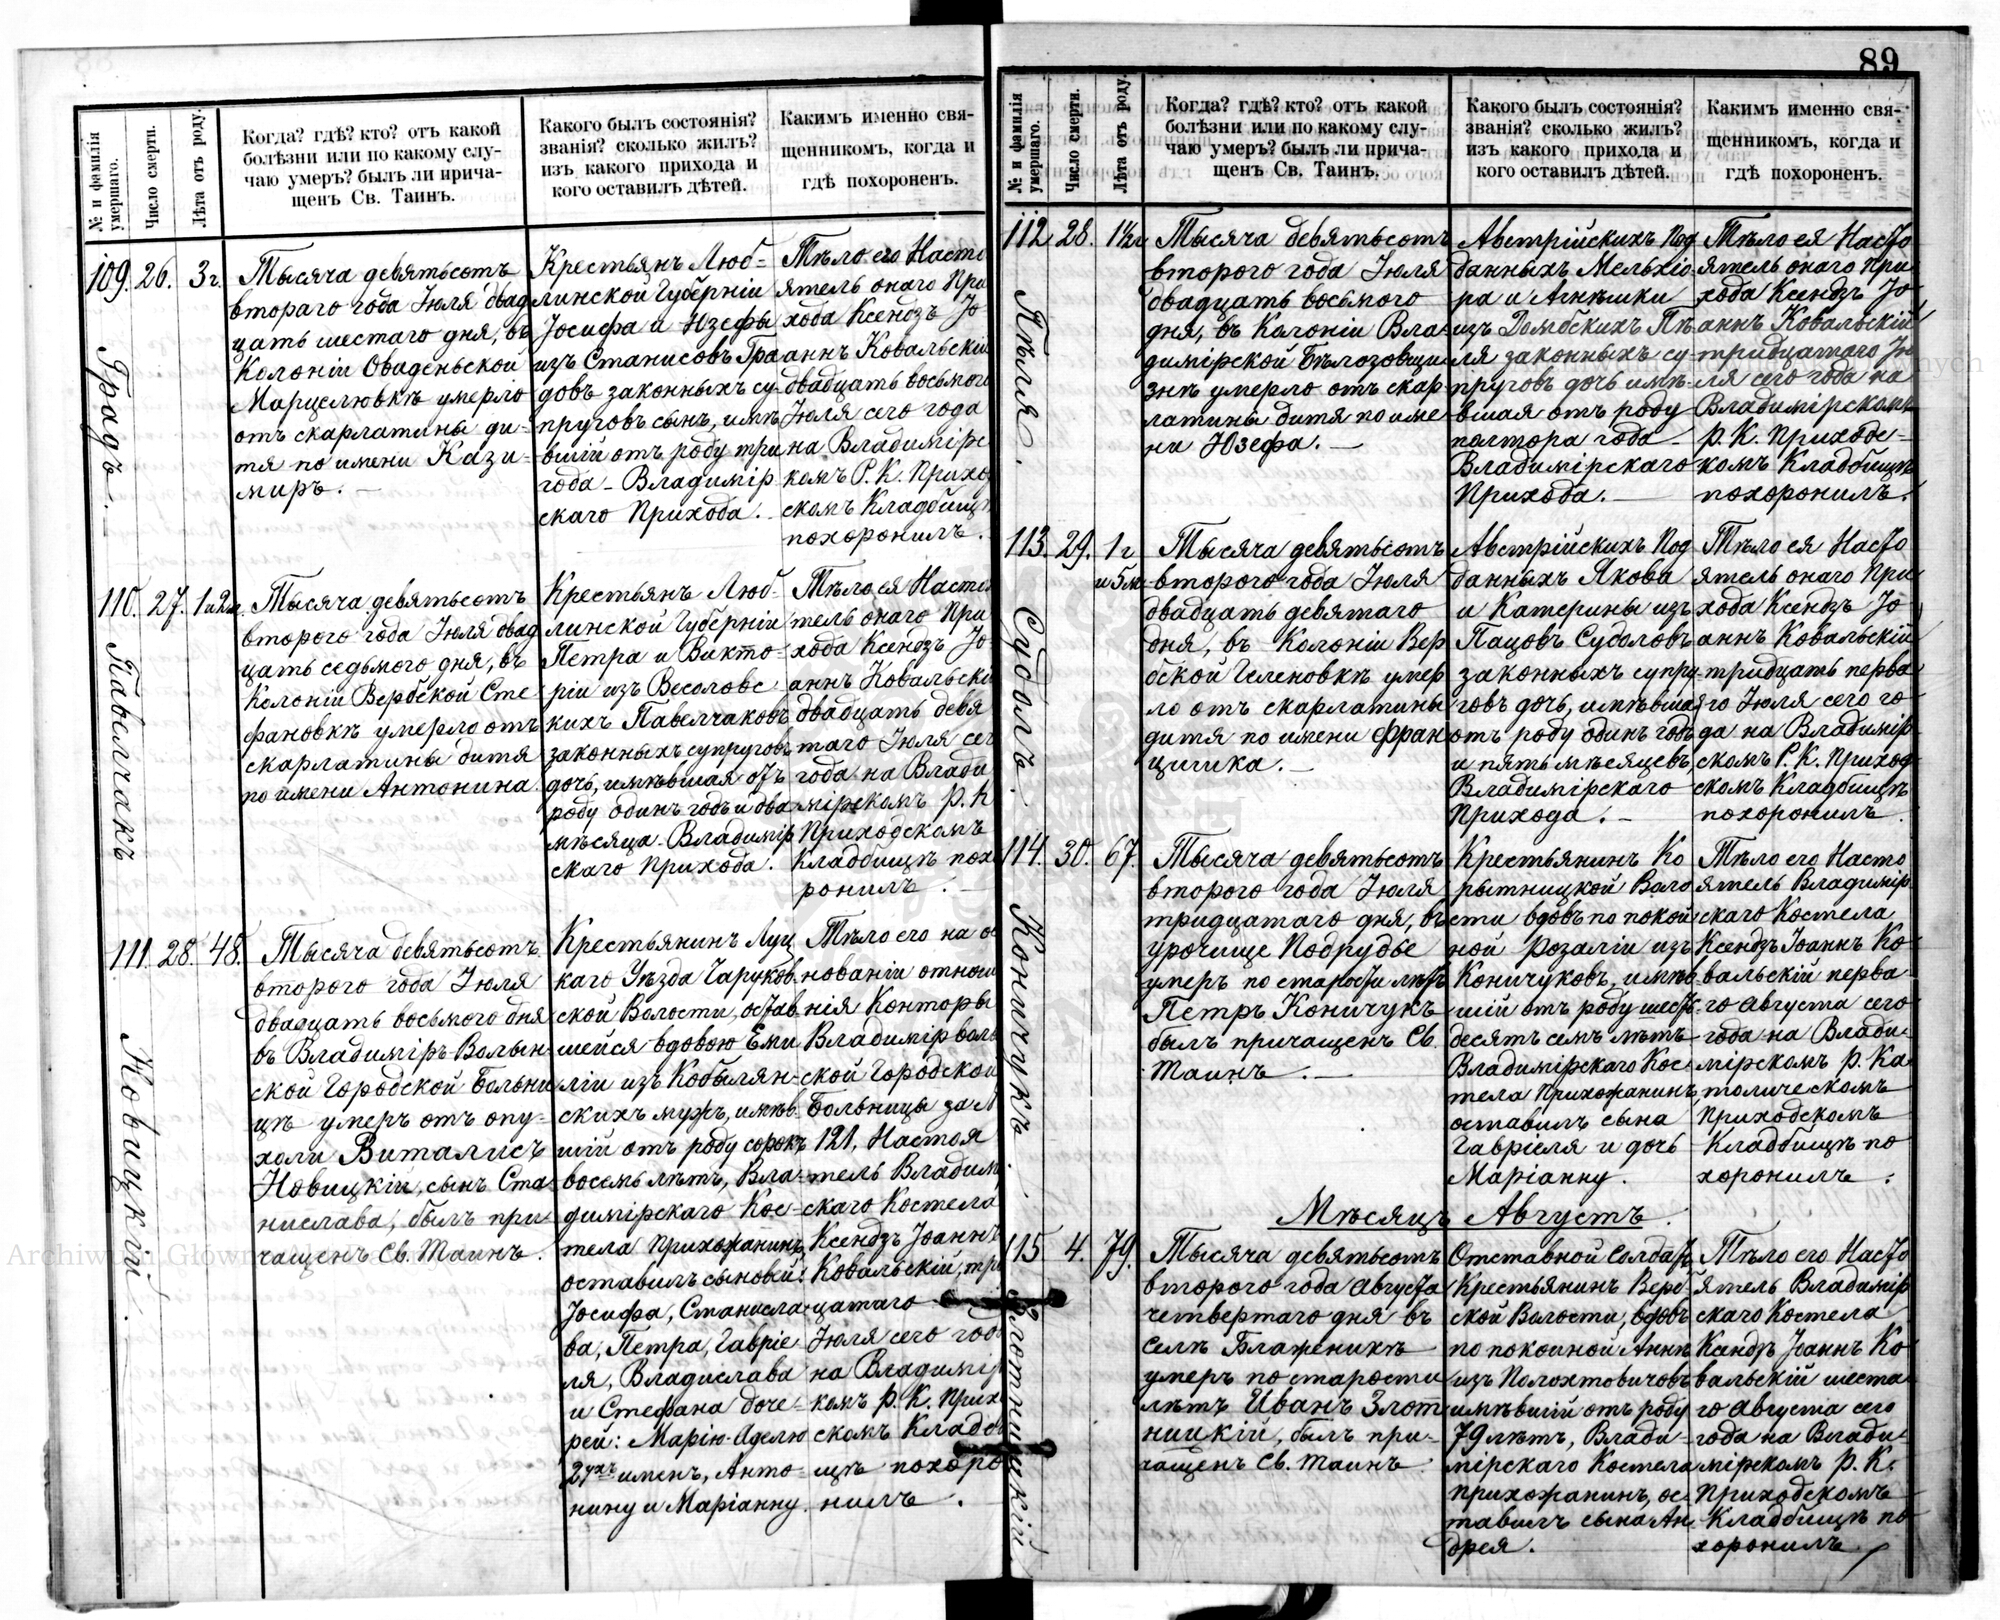 89
№ и фамилія умершаго.
Число смерти.
Лѣта отъ роду.
Когда? гдѣ? кто? отъ какой
болѣзни или по какому слу-
чаю умеръ? былъ ли прича-
щенъ Св. Таинъ.
Какого былъ состоянія?
званія? сколько жилъ?
изъ какого прихода и
кого оставилъ дѣтей.
Какимъ именно свя-
щенникомъ, когда и
гдѣ похороненъ.
109. 26. 3 г.
Градъ.
Тысяча девятьсотъ
втораго года Іюля двад
цать шестаго дня, въ
Колоніи Оваденьской
Марцелювкѣ умерло
отъ скарлатины ди-
тя по имени Кази-
миръ. —
Крестьянъ Люб-
линской Губерніи
Іосифа и Юзефы
изъ Станисовъ Гра
довъ законныхъ су-
пруговъ сынъ, имѣ
вшій отъ роду три
года - Владимір
скаго Прихода.
Тѣло его Насто
ятель онаго При
хода Ксендзъ Іо-
аннъ Ковальскій
двадцать восьмого
Іюля сего года
на Владимірс
комъ Р. К. Прихо
скомъ Кладбищѣ
похоронилъ.
110. 27. 1 и 2 м.
Павелчакъ
Тысяча девятьсотъ
второго года Іюля двад
цать седьмого дня, въ
Колоніи Вербской Сте
фановкѣ умерло отъ
скарлатины дитя
по имени Антонина.
Крестьянъ Люб-
линской Губерніи
Петра и Викто-
ріи изъ Весоловс
кихъ Павелчаковъ
законныхъ супруговъ
дочь, имѣвшая отъ
роду одинъ годъ и два
мѣсяца - Владимір
скаго Прихода.
Тѣло ея Насто
тель онаго При
хода Ксендзъ Іо
аннъ Ковальскі
двадцать девя
таго Іюля сег
года на Влади
мірскомъ Р. К
Приходскомъ
Кладбищѣ похо
ронилъ.
111. 28. 48.
Новицкій.
Тысяча девятьсотъ
второго года Іюля
двадцать восьмого дня
въ Владиміръ-Волын-
ской Городской Больни
цѣ умеръ отъ опу-
холи Виталисъ
Новицкій, сынъ Ста-
нислава, былъ при
чащенъ Св. Таинъ.
Крестьянинъ Луц
каго Уѣзда Чаруков-
ской Волости, остав
шейся вдовою Еми
ліи изъ Кобылян-
скихъ мужъ, имѣв-
шій отъ роду сорокъ
восемь лѣтъ, Вла-
димірскаго Кос-
тела Прихожанинъ,
оставилъ сыновей:
Іосифа, Станисла
ва, Петра, Гавріе
ля, Владислава
и Стефана доче-
рей: Марію-Аделю
2ухъ именъ, Анто-
нину и Маріанну.
Тѣло его на ос
нованіи отнош
нія Конторы
Владиміръ вол
ской Городской
Больницы за №
121, Настоя
тель Владим
скаго Костела
Ксендзъ Іоаннъ
Ковальскій, три
цатаго
Іюля сего год
на Владимір
комъ Р. К. Прихо
скомъ Кладб
щѣ похоро
нилъ.
№ и фамилія умершаго.
Число смерти.
Лѣта отъ роду.
Когда? гдѣ? кто? отъ какой
болѣзни или по какому слу-
чаю умеръ? былъ ли прича-
щенъ Св. Таинъ.
Какого былъ состоянія?
званія? сколько жилъ?
изъ какого прихода и
кого оставилъ дѣтей.
Какимъ именно свя-
щенникомъ, когда и
гдѣ похороненъ.
112. 28. 1½ г
Пѣля.
Тысяча девятьсотъ
второго года Іюля
двадцать восьмого
дня, въ Колоніи Вла-
димірской Бѣлозовщи
знѣ умерло отъ скар-
латины дитя по име
ни Юзефа. —
Австрійскихъ Под
данныхъ Мельхіо
ра и Агнѣшки
изъ Домбскихъ Пѣ
ля законныхъ су-
пруговъ дочь имѣ-
вшая отъ роду
полтора года -
Владимірскаго
Прихода. —
Тѣло ея Насто
ятель онаго При
хода Ксендзъ Іо
аннъ Ковальскій
тридцатаго Ію
ля сего года на
Владимірскомъ
Р. К. Приходс-
комъ Кладбищѣ
похоронилъ.
113. 29. 1 г
и 5 м.
Судолъ.
Тысяча девятьсотъ
второго года Іюля
двадцать девятаго
дня, въ Колоніи Вер
бской Геленовкѣ умер
ло отъ скарлатины
дитя по имени Фран
цишка. —
Австрійскихъ Под
данныхъ Якова
и Катерины изъ
Пацовъ Судоловъ
законныхъ супру
говъ дочь, имѣвшая
отъ роду одинъ годъ
и пять мѣсяцевъ,
Владимірскаго
Прихода. —
Тѣло ея Насто
ятель онаго При
хода Ксендзъ Іо
аннъ Ковальскій
тридцать перва
го Іюля сего го-
да на Владимір
скомъ Р. К. Приход
скомъ Кладбищѣ
похоронилъ.
114. 30. 67.
Коничукъ.
Тысяча девятьсотъ
второго года Іюля
тридцатаго дня, въ
урочище Подрудье
умеръ по старости лѣтъ
Петръ Коничукъ
былъ причащенъ Св.
Таинъ. —
Крестьянинъ Ко
рытницкой Воло
сти вдовъ по покой
ной Розаліи изъ
Коничуковъ, имѣв
шій отъ роду шесть-
десятъ семь лѣтъ
Владимірскаго Кос-
тела Прихожанинъ
оставилъ сына
Гавріеля и дочь
Маріанну.
Тѣло его Насто
ятель Владимір
скаго Костела
Ксендзъ Іоаннъ Ко
вальскій перва-
го Августа сего
года на Влади-
мірскомъ Р. Ка
толическомъ
Приходскомъ
Кладбищѣ по
хоронилъ.
Мѣсяцъ Августъ.
115 4. 79.
Злотницкій
Тысяча девятьсотъ
второго года Августа
четвертаго дня въ
селѣ Блаженикѣ
умеръ по старости
лѣтъ Иванъ Злот
ницкій, былъ при-
чащенъ Св. Таинъ.
Отставной Солдатъ
Крестьянинъ Верб
ской Волости, вдовъ
по покойной Аннѣ
изъ Полохтовичовъ
имѣвшій отъ роду
79 лѣтъ, Влади-
мірскаго Костела
прихожанинъ, ос-
тавилъ сына Ан
дрея.
Тѣло его Насто
ятель Владимір
скаго Костела
Ксендзъ Іоаннъ Ко
вальскій шеста
го Августа сего
года на Влади-
мірскомъ Р. К.
Приходскомъ
Кладбищѣ по
хоронилъ.